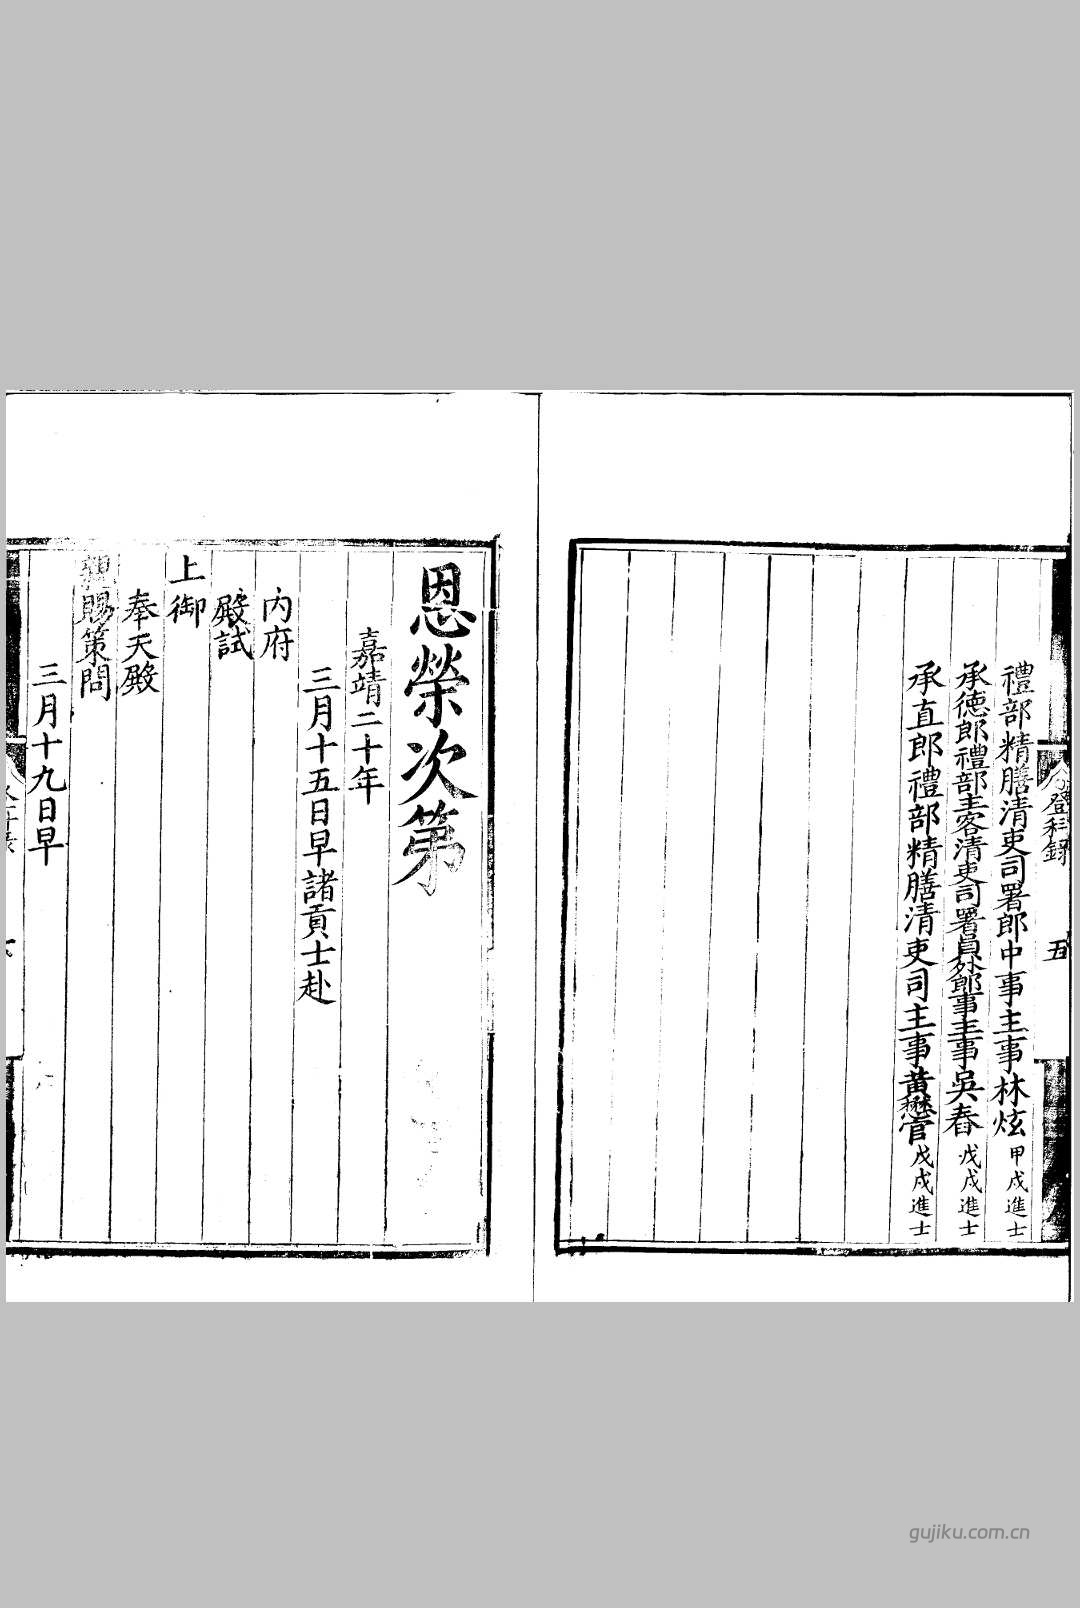 登科錄
五
禮部精膳清吏司署郎中事主事林炫甲戌進士
承德郎禮部主客清吏司署員外郎事主事吳春戊戌進士
承直郎禮部精膳清吏司主事黃懋官戊戌進士
恩榮次第
嘉靖二十年
三月十五日早諸貢士赴
內府
殿試
上御
奉天殿
親賜策問
三月十九日早
gujiku.com.cn